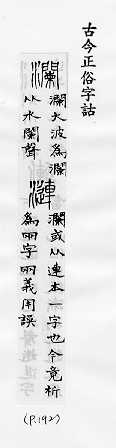 古今正俗字詁
瀾 瀾大波為瀾
从水闌聲
漣 瀾或从連本一字也今竟析
為兩字兩義用誤
(P.192)